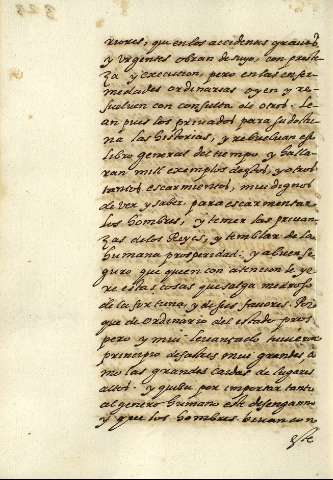 riores, que en los accidentes graves,
y urgentes obran de suyo, con preste-
za y execucion, pero en las enfer-
medades ordinarias oyen y re-
suelven con consulta de otros. Le-
an pues los privados para su doctri-
na las historias, y rebuelvan el
libro general del tiempo, y halla-
ran mill exemplos destos, y otros
tantos escarmientos, mui dignos
de ver y saber para escarmentar
los hombres, y temer las privan-
zas de los Reyes, y temblar de la
humana prosperidad: y a buen se-
guro que quien con atencion le ye-
re estas cosas que salga medroso
de la fortuna, y de sus favores. Por-
que de ordinario del estado pros-
pero y mui levantado tuvieron
principio desastres mui grandes, co-
mo las grandes caidas de lugares
altos. y quiza por importar tanto
al genero humano este desengaño
y que los hombres vivan con
este